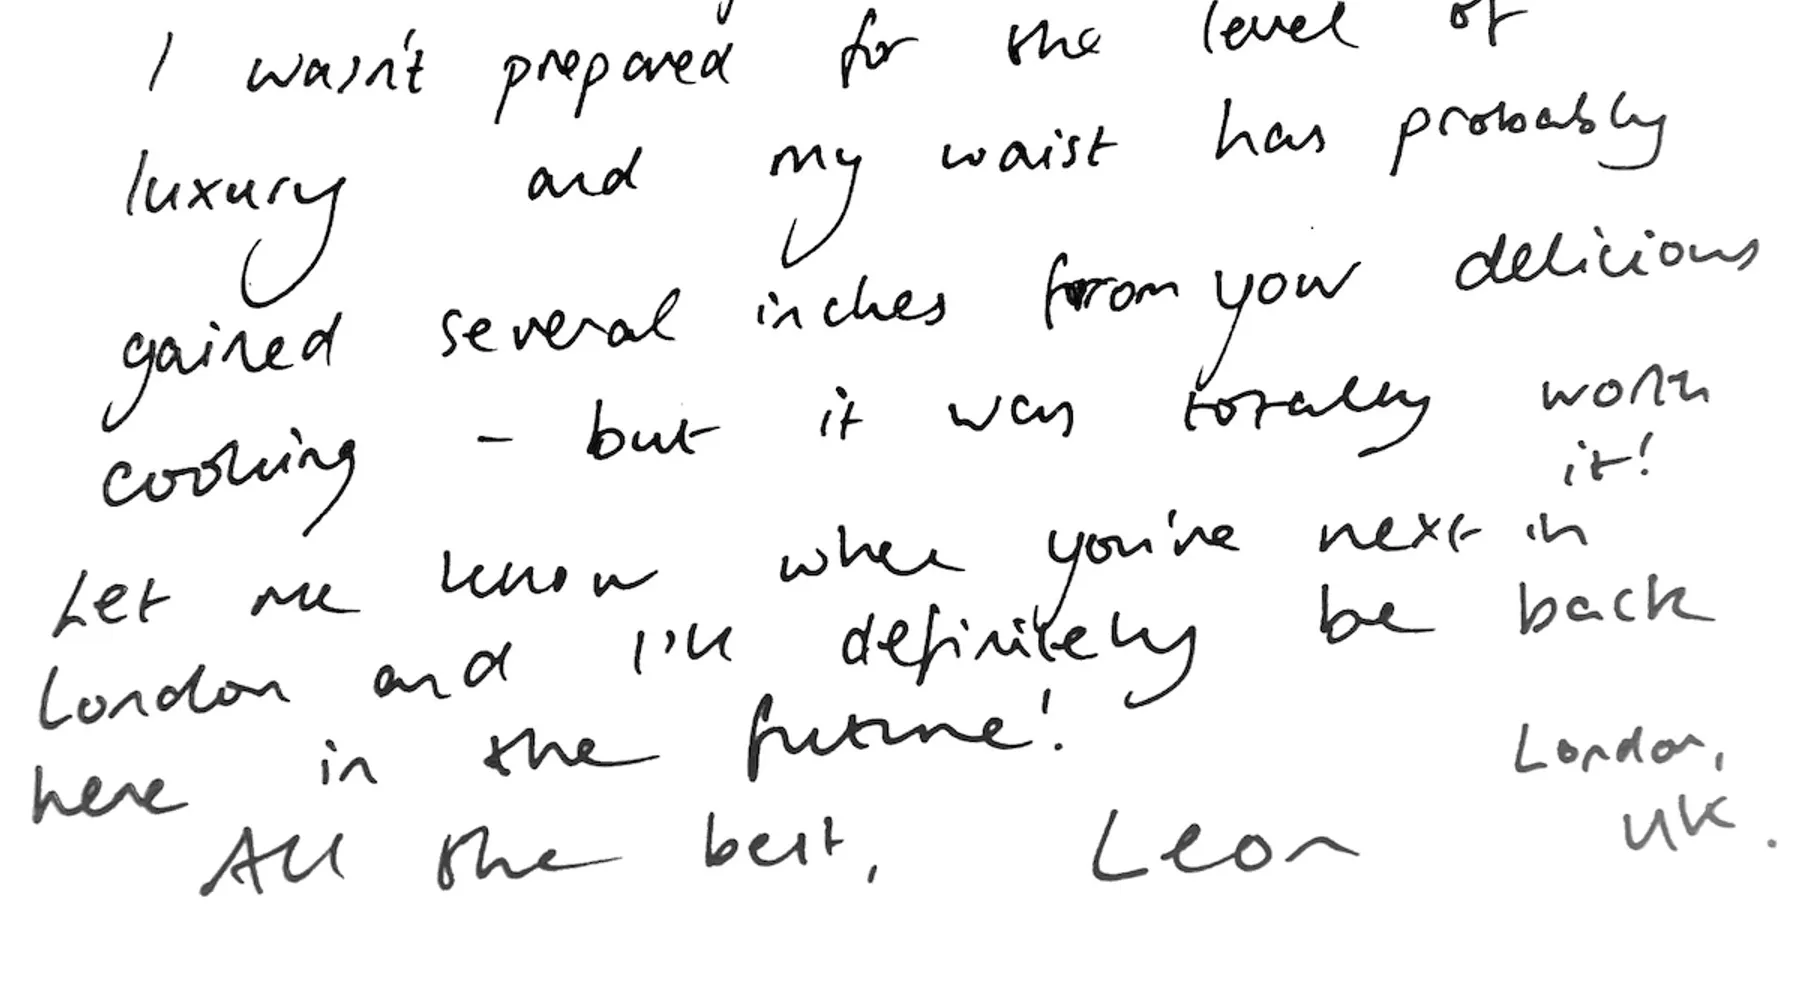 I wasn't prepared for the level of
luxury and my waist has probably
gained several inches from your delicious
cooking - but it was totally worth
it!
Let me know when you're next in
London and I'll definitely be back
here in the future!
All the best, Leon
London,
UK.